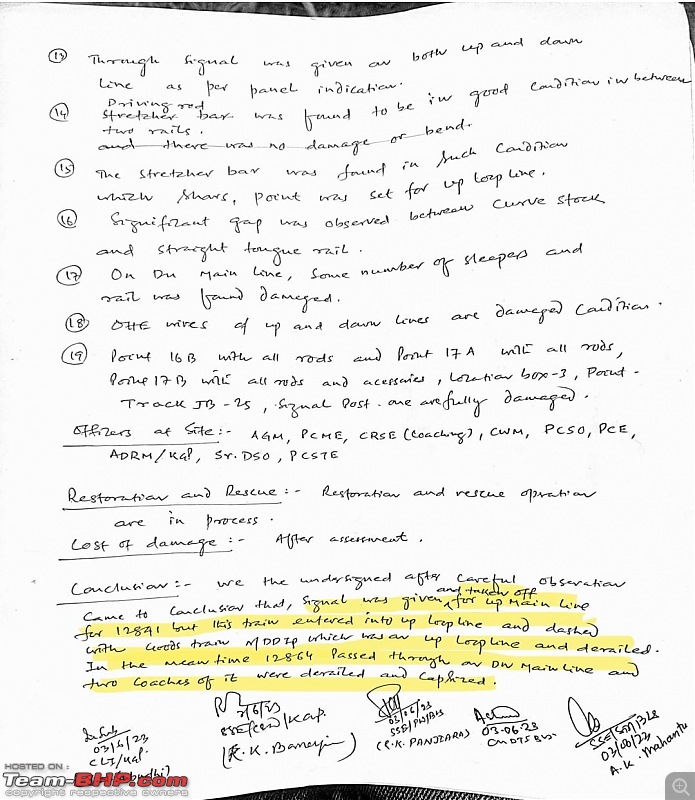 (13) Through signal was given on both up and down
line as per panel indication.
Driving rod
(14) stretcher bar was found to be in good condition in between
two rails.
and there was no damage or bend.
(15) The stretcher bar was found in such condition
which shars, point was set for up loop line.
(16) Significant gap was observed between curve stock
and straight tongue rail.
(17) On Dn main line, some number of sleepers and
rail was found damaged.
(18) OHE wires of up and down lines are damaged condition.
(19) Point 16B with all rods and Point 17A with all rods,
Point 17B with all rods and acessories, Location box-3, Point-
Track JB-25, Signal Post. are fully damaged.
Officers at Site:- AGM, PCME, CRSE (Coaching), CWM, PCSO, PCE,
ADRM/KGP, Sr. DSO, PCSTE
Restoration and Rescue:- Restoration and rescue opration
are in process.
Cost of damage:- After assessment.
Conclusion:- we the undersigned after careful obseration
and taken off
Came to conclusion that, signal was given for up main line
for 12841 but this train entered into up loopline and dashed
with Goods train N/DDIP which was on up loopline and derailed.
In the mean time 12864 Passed through on Dn Mainline and
two coaches of it were derailed and capsized.
03/6/23
CLI/KGP.
SSE/C&W/KGP.
(R. K. Banerjee)
03/06/23
SSE/PW/BLS
(R.K. PANJIARA)
03.06.23
SSE/SIG/BLS
03/06/23
A.K. Mahanta
HOSTED ON :
Team-BHP.com
copyright respective owners